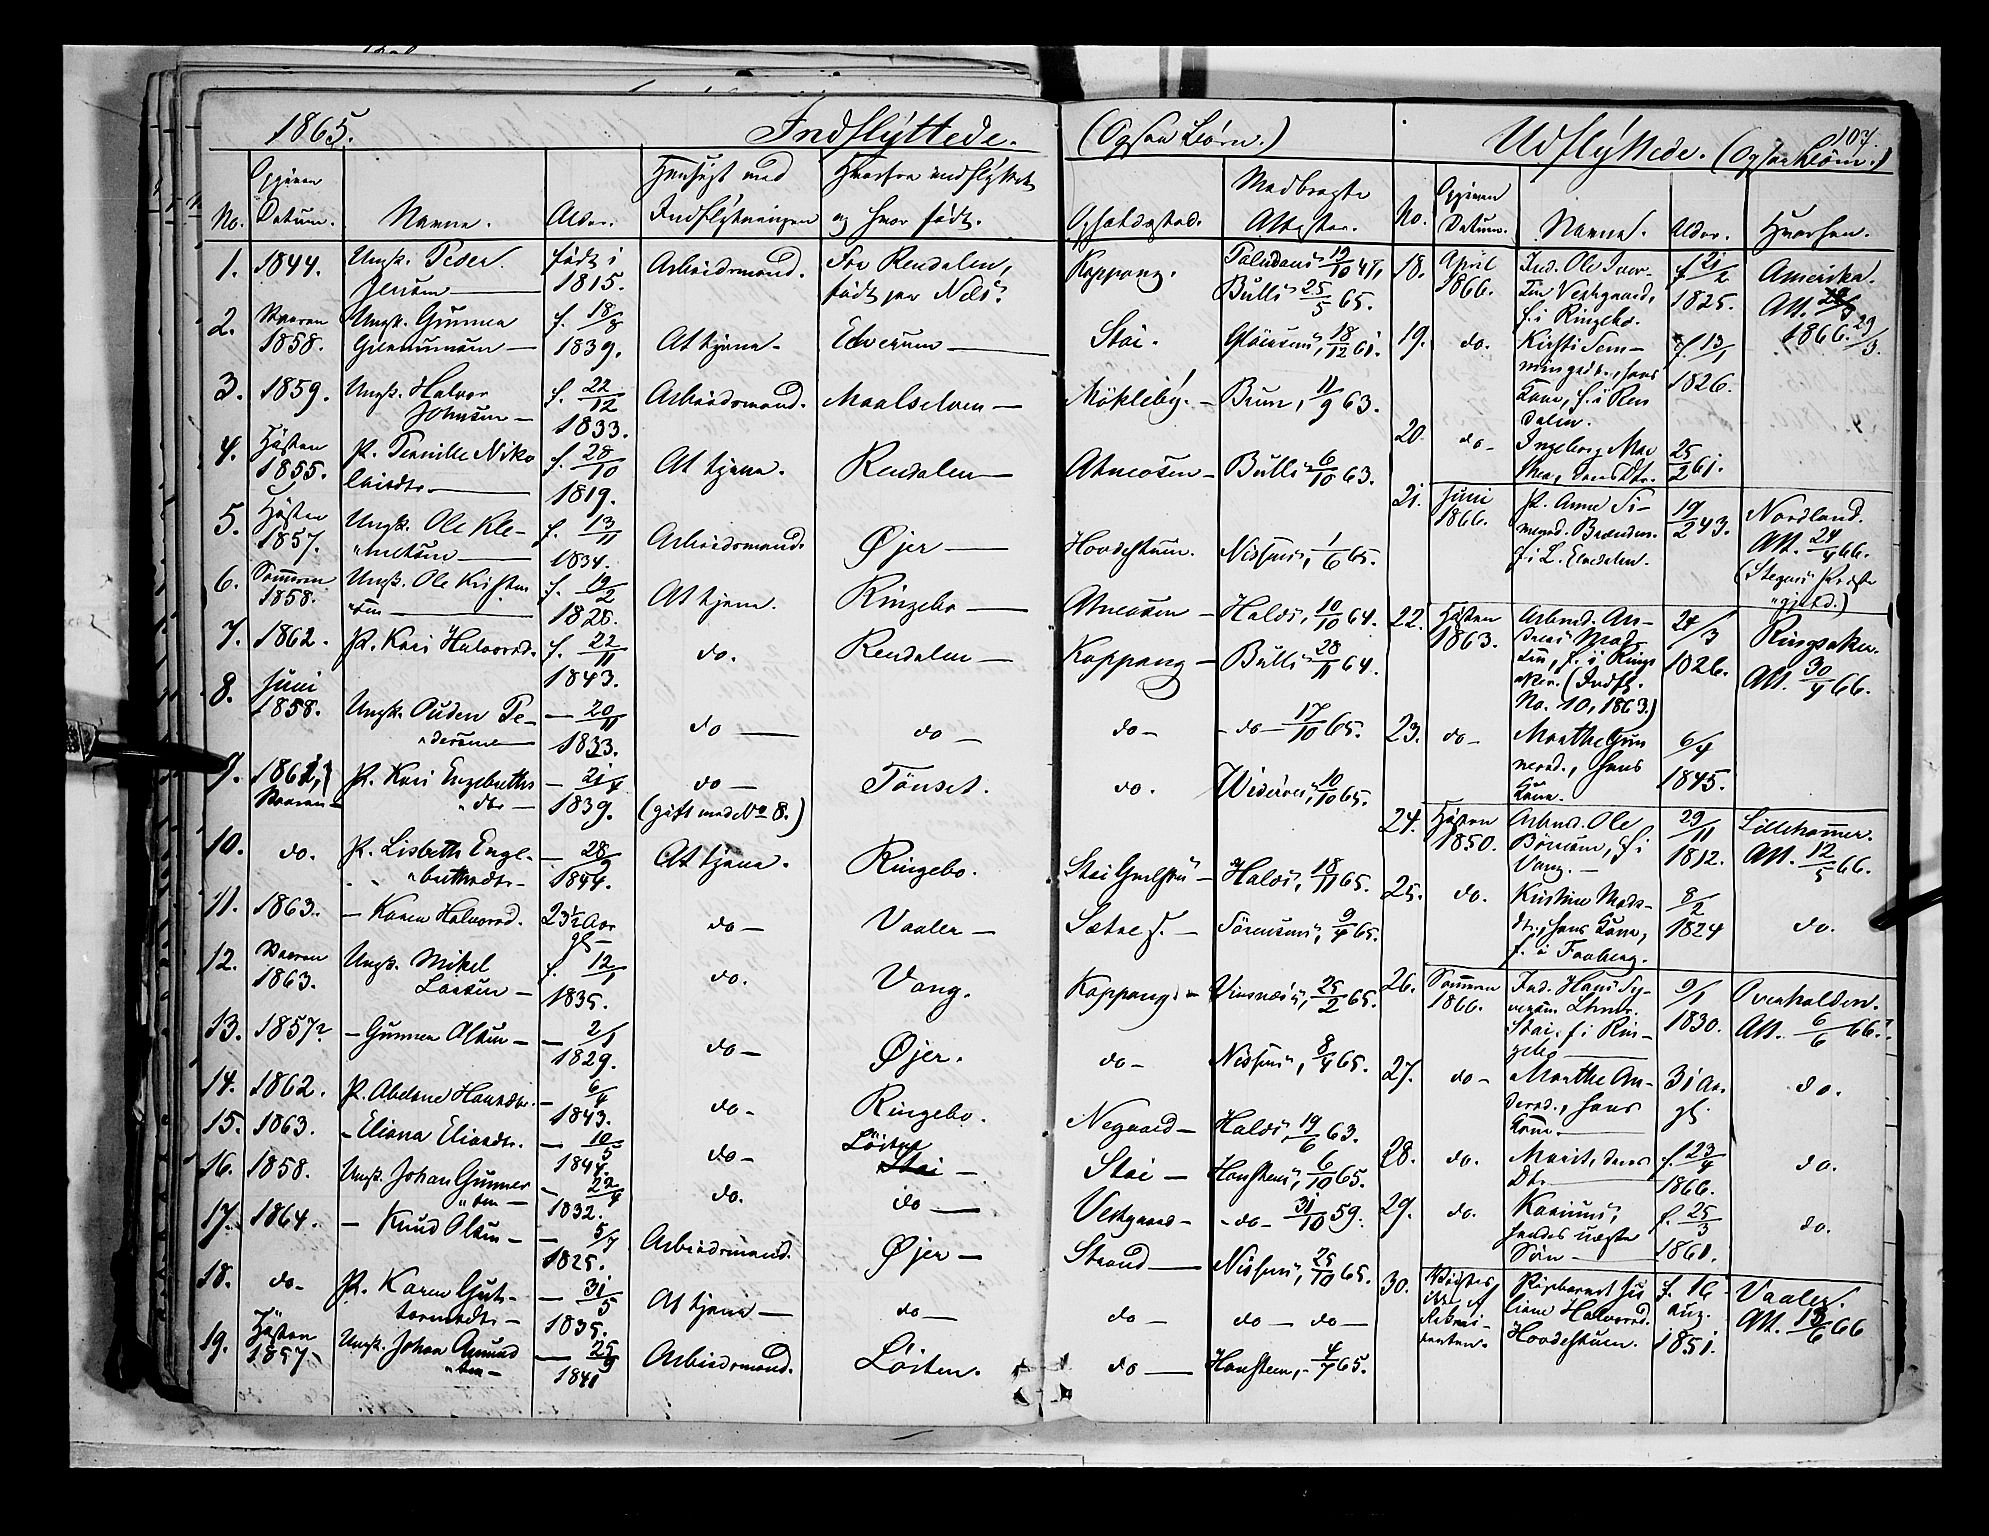 1865.
Indflyttede.
(Ogsaa Børn.)
Udflyttede. (Ogsaa Børn.)
107.
No. Opgiven Datum. Navne. Alder. Hensigt med Indflytningen Hvorfra indflyttet og hvor født. Opholdssted. Medbragte Attester.
1. 1844. Ungk. Peder Jensen født i 1815. Arbeidsmand. Fra Rendalen, født paa Næs? Koppang. 19/10 48, Bulls 25/5 65.
2. Vaaren 1858. Ungk. Gunner Gunnersen f. 18/8 1839. At tjene Elverum Stai. 18/12 61.
3. 1859. Ungk. Halvor Johnsen f. 22/12 1833. Arbeidsmand. Maalselven Mökleby. Brun, 11/9 63.
4. Hösten 1855. P. Pernille Nikolaisdtr. f. 28/10 1819. At tjene. Rendalen Atneosen Bulls 6/10 63.
5. Hösten 1857. Ungk. Ole Klemetsen f. 13/11 1834. Arbeidsmand. Øjer Hovdestuen. Nissens, 1/6 65.
6. Sommeren 1858. Ungk. Ole Kristensen f. 19/2 1828. At tjene. Ringebo Atneosen Halds, 10/10 64.
7. 1862. P. Kari Halvorsd. f. 22/11 1843. do. Rendalen Koppang Bulls 28/11 64.
8. Juni 1858. Ungk. Ouden Pedersen 20/11 1833. do do do do 17/10 65.
9. 1861, Vaaren P. Kari Engebrethsdtr 21/4 1839. do (gift med No 8.) Tönset. do. 10/10 65.
10. do. P. Lisbeth Engebrethsdtr. 28/9 1844. At tjene. Ringebo. Stai Halds, 18/11 65.
11. 1863. Karen Halvorsd. 23½ Aar gl. do Vaaler Sætre Sörensens, 9/4 65.
12. Vaaren 1863. Ungk. Mikel Larsen f. 12/1 1835. do. Vang. Koppang 25/2 65.
13. 1857? Gunner Olsen 2/1 1829. do Øjer. do Nissens 8/4 65.
14. 1862. P. Abelone Hansdtr. 6/4 1843. do Ringebo. Negaard Halds, 19/6 63.
15. 1863. Eliana Eliasdtr. 10/5 1844. do Löiten Stai Hansteens, 6/10 65.
16. 1858. Ungk. Johan Gunnersen 22/4 1832. do. do Vestgaard do 31/10 59.
17. 1864. Knud Olsen 5/7 1825. Arbeidsmand. Øjer Strand Nissens, 25/10 65.
18. do P. Karen Guttormsdtr 31/5 1835. At tjene do do do do
19. Hösten 1857. Ungk. Johan Amundsen 25/9 1841 Arbeidsmand. Löiten. do Hansteen, 4/7 65.
No. Opgiven Datum. Navne. Alder. Hvorhen.
18. April 1866. Ind. Ole Iversen Vestgaard, f. i Ringebo. f. 21/2 1825. Amerika. Att. 29/3 1866.
19. do. Kirsti Semmingsdtr., hans Kone, f. i Rendalen. f. 13/1 1826.
20. do Ingeborg Marthea, deres Dtr. 25/2 61.
21. Juni 1866. P. Anne Simensd. Brænden f. i L. Elvedalen. 19/2 43. Nordland. Att. 24/4 66. (Stegens Præstegjeld.)
22. Hösten 1863. Arbmd. Andreas Madsen, f. i Ringsaker. (Indfl. No. 10, 1863.) 24/3 1826. Ringsaker. Att. 30/4 66.
23. do Marthe Gunnersd., hans Kone. 6/4 1845.
24. Hösten 1850. Arbmd. Ole f. i Vang. 29/11 1812. Lillehammer. Att. 12/5 66.
25. do. Kristine Madsdtr., hans Kone, f. i Faaberg. 8/2 1824 do.
26. Sommeren 1866. Ind. Hans Syversen Stai. f. i Ringebo 9/1 1830. Overhalden. Att. 6/6 66.
27. do Marthe Andersd., hans Kone. 31 Aar gl. do.
28. do. Marit, deres Dtr. f. 23/4 1866. do.
29. do. Karinus, hendes uægte Sön f. 25/3 1861. do.
30. Pigebarnet Juliane Halvorsd. Hovdestuen. f. 16 Aug. 1851. Vaaler. Att. 13/6 66